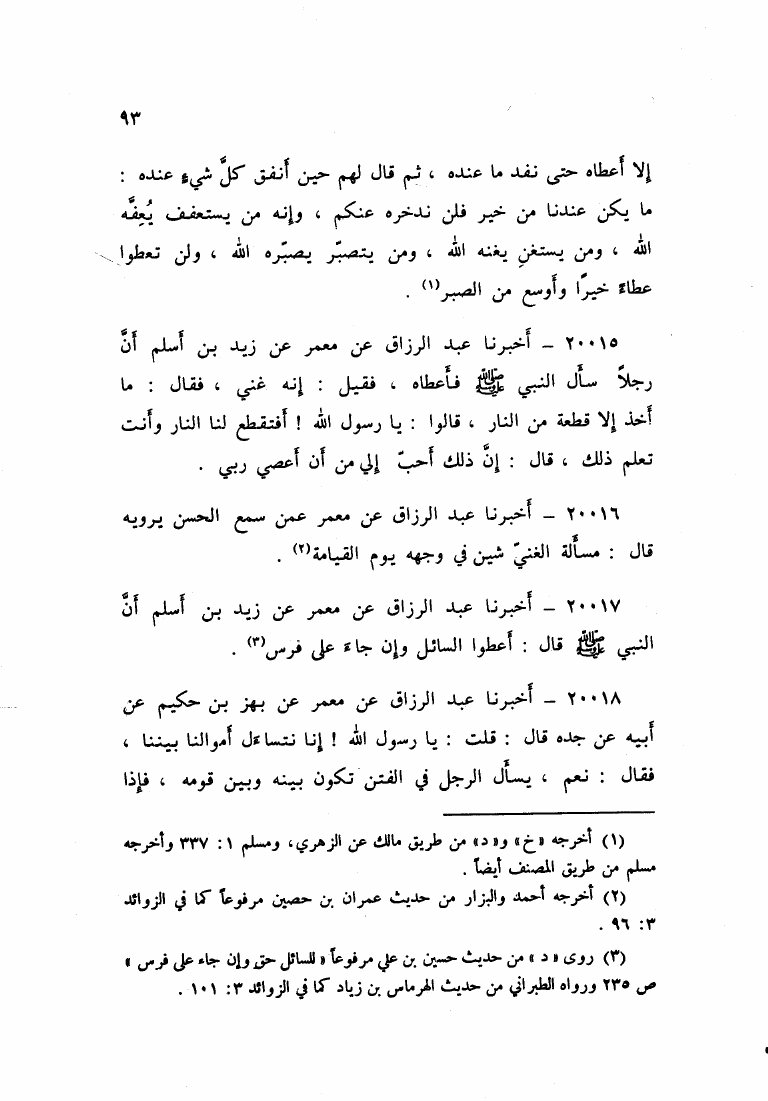 ٩٣
إلا أَعطاه حتى نفد ما عنده ، ثم قال لهم حين أَنفق كلَّ شيءٍ عنده :
ما يكن عندنا من خير فلن ندخره عنكم ، وإنه من يستعفف يُعِفَّه
الله ، ومن يستغنِ يغنه الله ، ومن يتصبّر يصبّره الله ، ولن تعطوا
عطاءً خيرًا وأَوسع من الصبر(١) .
٢٠٠١٥ – أَخبرنا عبد الرزاق عن معمر عن زيد بن أَسلم أَنَّ
رجلاً سأَل النبي ﷺ فأَعطاه ، فقيل : إنه غني ، فقال : ما
أَخذ إلا قطعة من النار ، قالوا : يا رسول الله ! أَفتقطع لنا النار وأَنت
تعلم ذلك ، قال : إنَّ ذلك أَحبّ إلي من أَن أَعصي ربي .
٢٠٠١٦ – أَخبرنا عبد الرزاق عن معمر عمن سمع الحسن يرويه
قال : مسأَلة الغنيّ شين في وجهه يوم القيامة(٢) .
٢٠٠١٧ – أَخبرنا عبد الرزاق عن معمر عن زيد بن أَسلم أَنَّ
النبي ﷺ قال : أَعطوا السائل وإن جاءَ على فرس(٣) .
٢٠٠١٨ – أَخبرنا عبد الرزاق عن معمر عن بهز بن حكيم عن
أَبيه عن جده قال : قلت : يا رسول الله ! إنا نتساءَل أَموالنا بيننا ،
فقال : نعم ، يسأَل الرجل في الفتن تكون بينه وبين قومه ، فإذا
(١) أخرجه «خ» و«د» من طريق مالك عن الزهري، ومسلم ١: ٣٣٧ وأخرجه
مسلم من طريق المصنف أيضاً .
(٢) أخرجه أحمد والبزار من حديث عمران بن حصين مرفوعاً كما في الزوائد
٣: ٩٦ .
(٣) روى « د » من حديث حسين بن علي مرفوعاً « للسائل حق وإن جاء على فرس »
ص ٢٣٥ ورواه الطبراني من حديث الهرماس بن زياد كما في الزوائد ٣: ١٠١ .